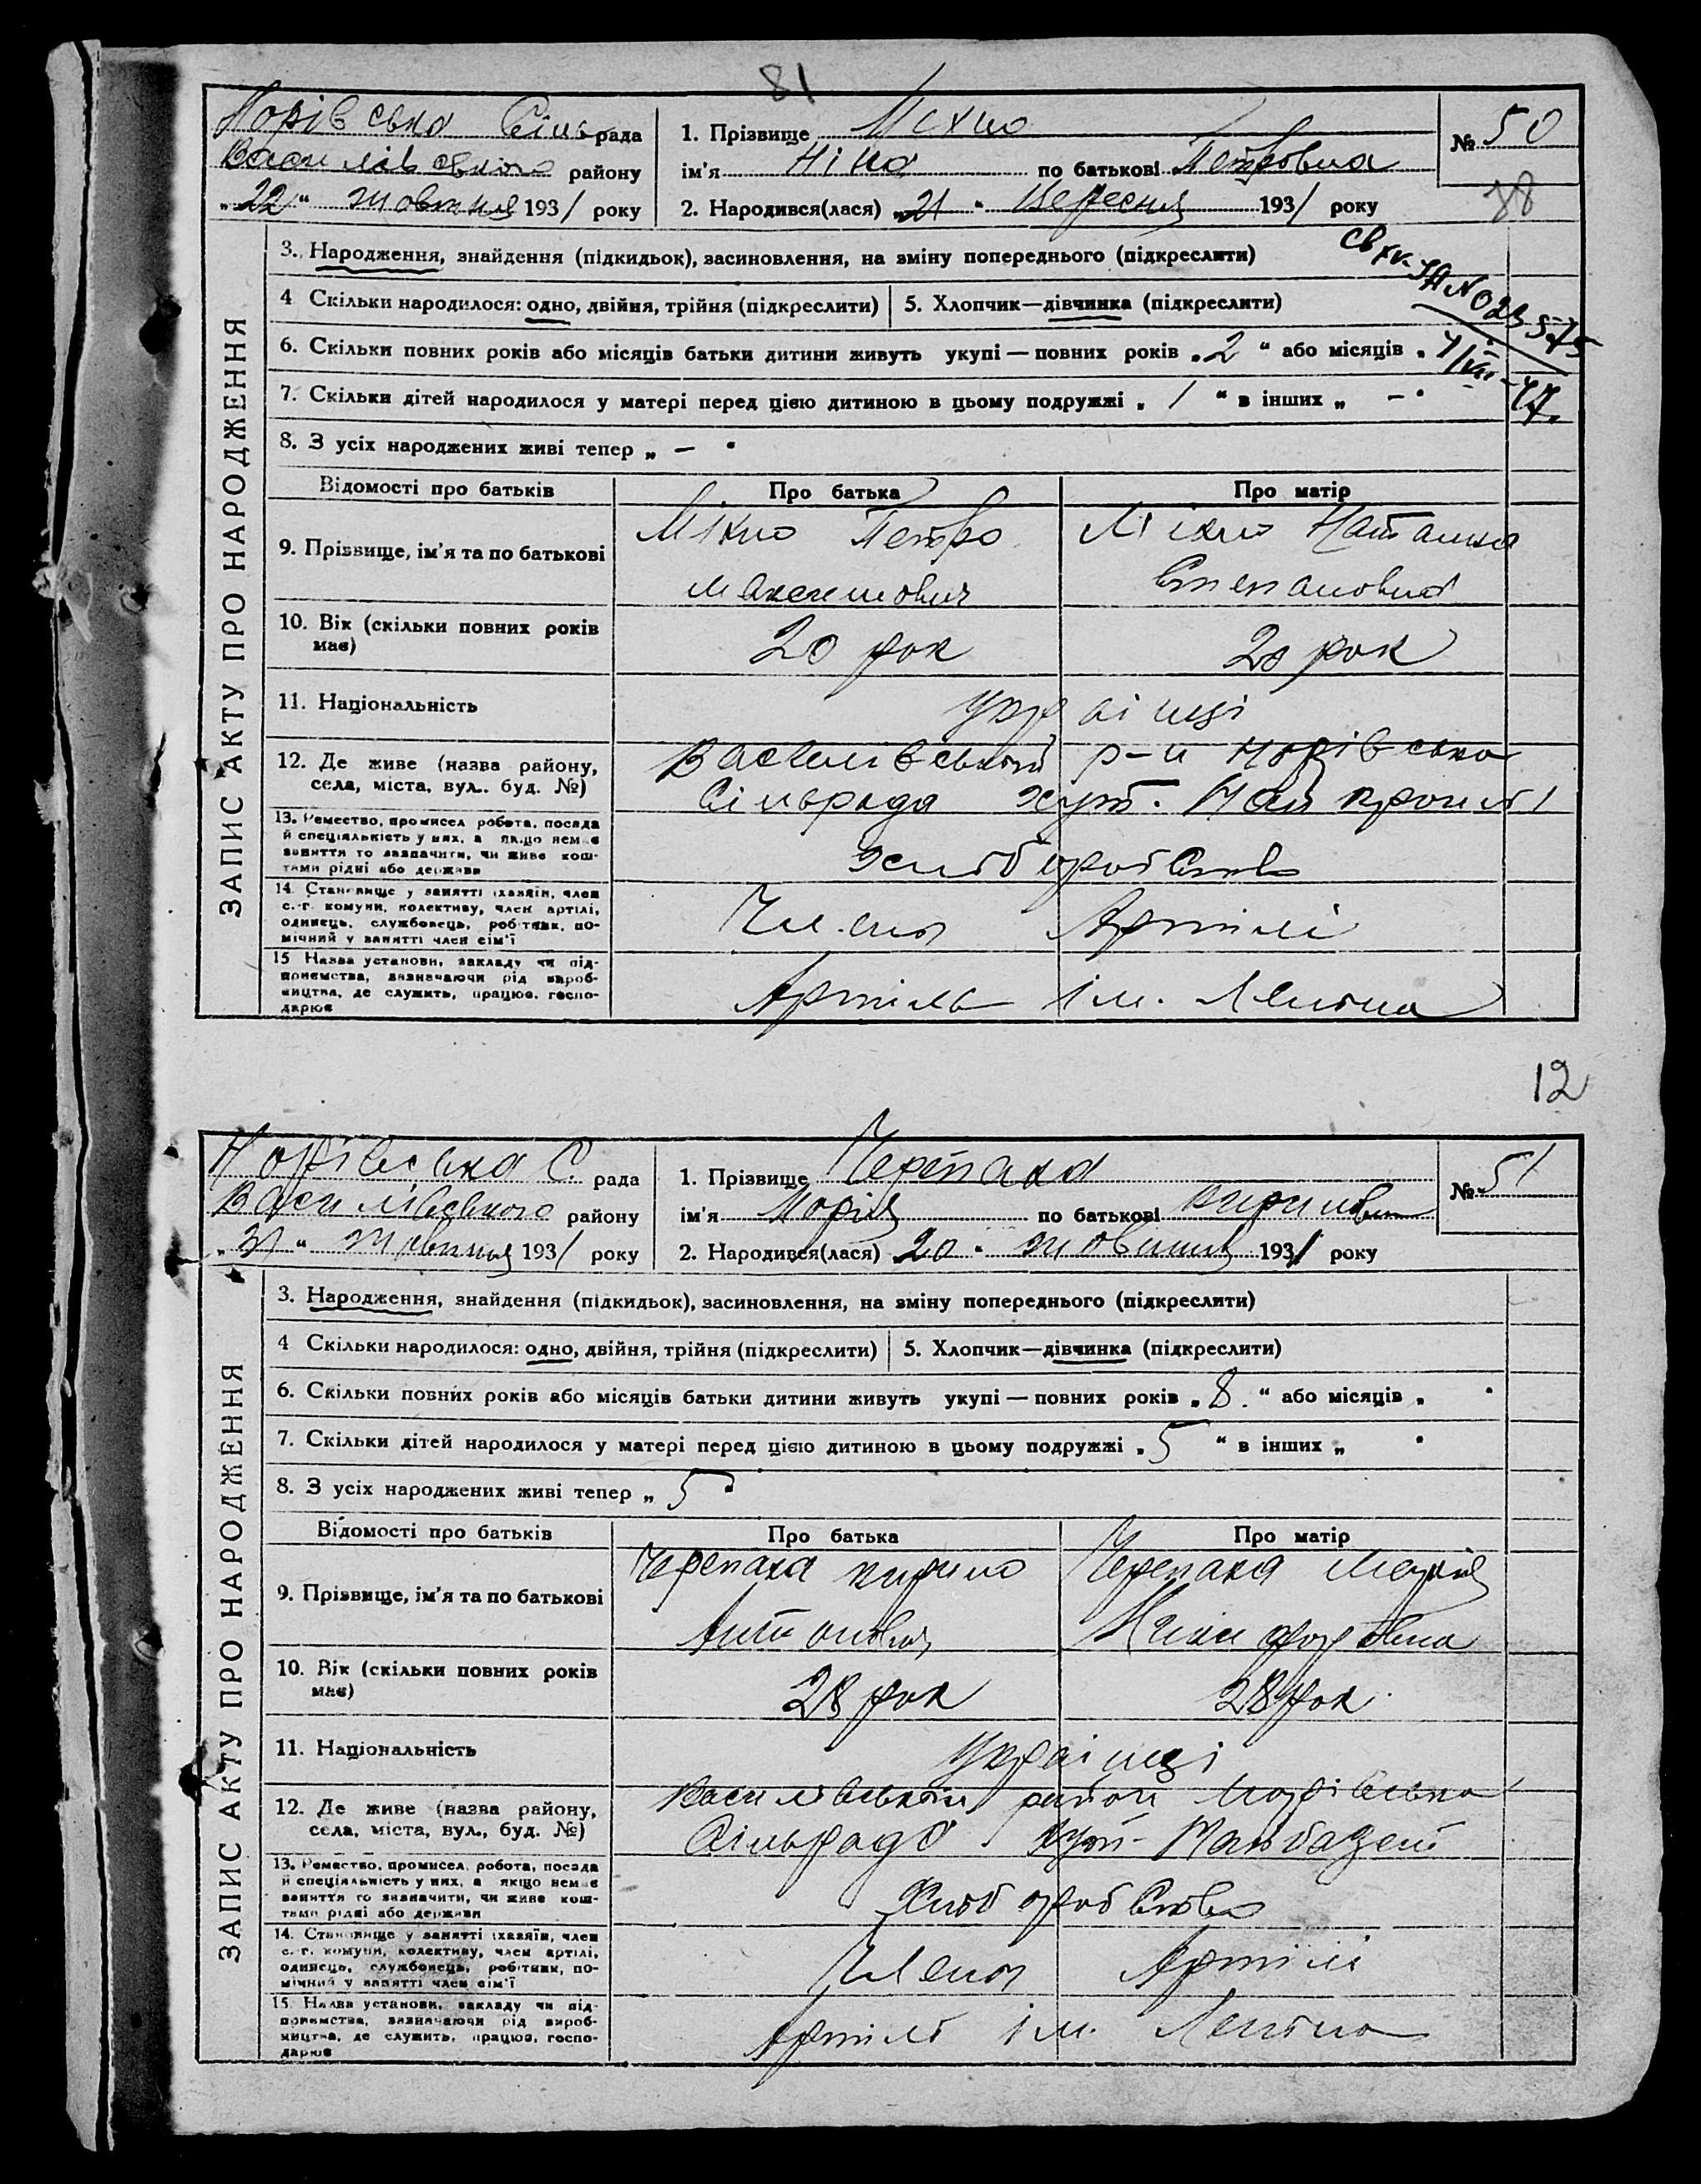 81
Норівська Сільрада
Василівського району
„22“ жовтня 1931 року
1. Прізвище Міхно
ім'я Ніна по батькові Петровна
2. Народився(лася) „21“ Вересня 1931 року
№ 50
3. Народження, знайдення (підкидьок), засиновлення, на зміну попереднього (підкреслити)
4 Скільки народилося: одно, двійня, трійня (підкреслити) 5. Хлопчик—дівчинка (підкреслити)
6. Скільки повних років або місяців батьки дитини живуть укупі — повних років „2“ або місяців „
7. Скільки дітей народилося у матері перед цією дитиною в цьому подружжі „1“ в інших „—“
8. З усіх народжених живі тепер „—“
ЗАПИС АКТУ ПРО НАРОДЖЕННЯ
Відомості про батьків Про батька Про матір
9. Прізвище, ім'я та по батькові
Міхно Петро
Максимович
Міхно Наталка
Степановна
10. Вік (скільки повних років має)
20 рок 20 рок
11. Національність
українці
12. Де живе (назва району, села, міста, вул. буд. №)
Василівський р-н Норівська
Сільрада хут.
13. Ремество, промисел робота, посада й спеціяльність у них, а якщо немає заняття то зазначити, чи живе коштами рідні або держави
хліборобство
14. Становище у занятті (хазяїн, член с.-г. комуни, колективу, член артілі, одинець, службовець, робітник, помічний у занятті член сім'ї
Члены Артілі
15 Назва установи, закладу чи підприємства, зазначаючи рід виробництва, де служить, працює, господарює
Артіль ім. Леніна
12
Норівська С. рада
Василівського району
„31“ жовтня 1931 року
1. Прізвище Черепаха
ім'я Марія по батькові Кирилівн
2. Народився(лася) „20“ жовтня 1931 року
№ 51
3. Народження, знайдення (підкидьок), засиновлення, на зміну попереднього (підкреслити)
4 Скільки народилося: одно, двійня, трійня (підкреслити) 5. Хлопчик—дівчинка (підкреслити)
6. Скільки повних років або місяців батьки дитини живуть укупі — повних років „8“ або місяців „
7. Скільки дітей народилося у матері перед цією дитиною в цьому подружжі „5“ в інших „
8. З усіх народжених живі тепер „5“
ЗАПИС АКТУ ПРО НАРОДЖЕННЯ
Відомості про батьків Про батька Про матір
9. Прізвище, ім'я та по батькові
Черепаха Кирило
Антонович
Черепаха Марія
Никифоровна
10. Вік (скільки повних років має)
28 рок 28 рок
11. Національність
українці
12. Де живе (назва району, села, міста, вул., буд. №)
Василівський район Норівська
Сільрада хут.
13. Ремество, промисел, робота, посада й спеціяльність у них, а якщо немає заняття то зазначити, чи живе коштами рідні або держави
Хліборобство
14. Становище у занятті (хазяїн, член с.-г. комуни, колективу, член артілі, одинець, службовець, робітник, помічний у занятті член сім'ї
Члены Артілі
15. Назва установи, закладу чи підприємства, зазначаючи рід виробництва, де служить, працює, господарює
Артіль ім. Леніна